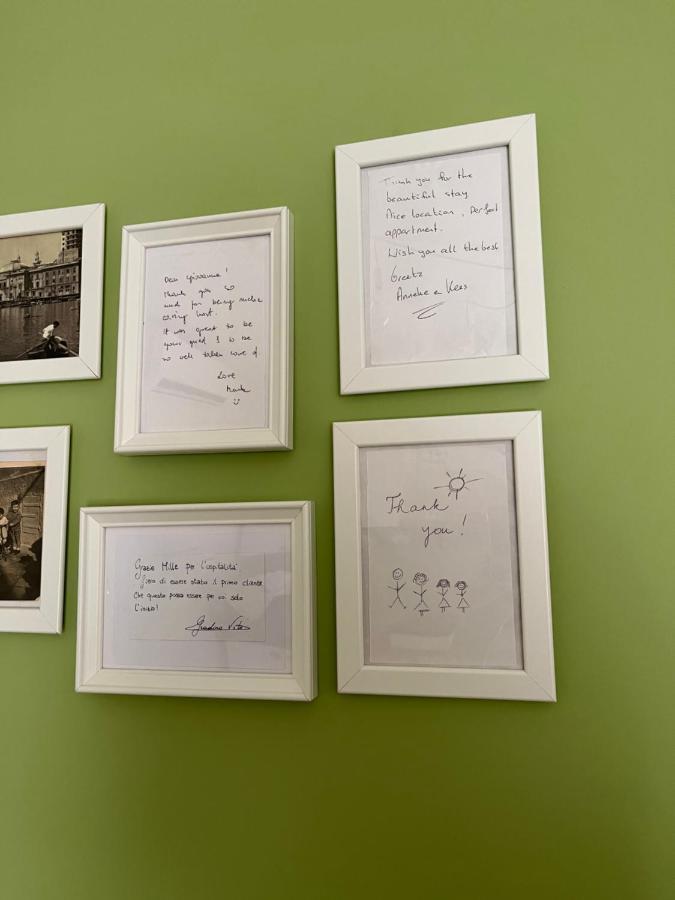 Dear Giovanna!
Thank you
and for being such a
caring host.
It was great to be
your guest & to be
so well taken care of
Love
Thank you for the
beautiful stay
Nice location, perfect
appartment.
Wish you all the best
Greetz
Anneke e Kees
Grazie Mille per l'ospitalità.
di essere stato il primo cliente
Che questo possa essere per solo
l'inizio!
Thank
you!